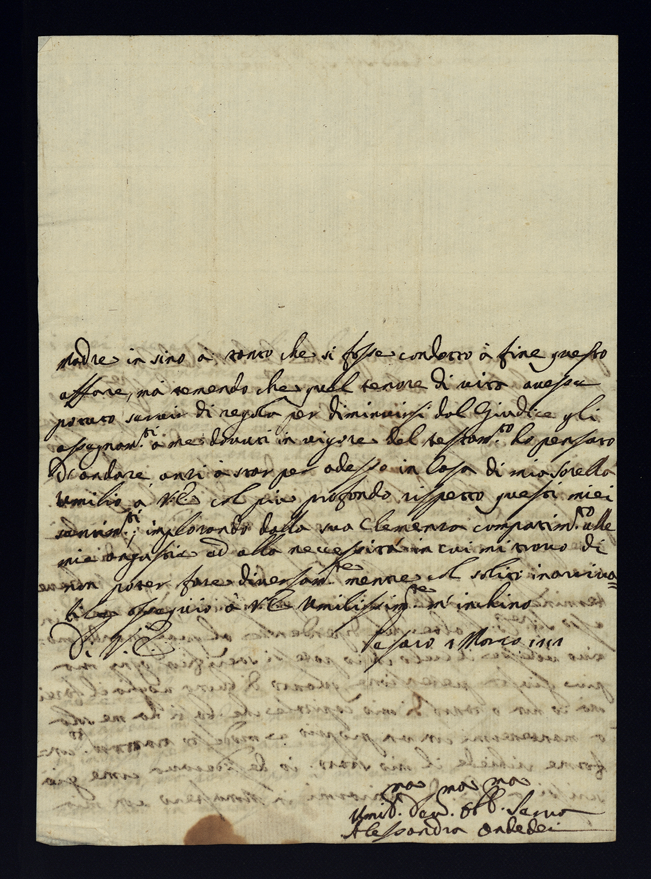 Madre in sino à tanto che si fosse condotto à fine questo
affare, mà temendo che quel tenore di vita avesse
potuto servir di regola per diminuirsi dal Giudice gli
assegnam.ti à me dovuti in vigore del testam.to hò pensato
d'andare anzi à star per adesso in Casa di mia sorella
Umilio a V.E. col più profondo rispetto questi miei
sentim.ti, implorando dalla sua Clemenza compatim.to alle
mie angustie ed alla necessità in cui mi trovo di
non poter fare diversam.te mentre col solito inarriva=
bile ossequio à V.E. Umilissim.te m'inchino
D. V. E. Pesaro 1 Marzo
Umil.ma Dev.ma Obb.ma Serva
Alessandra Ondedei